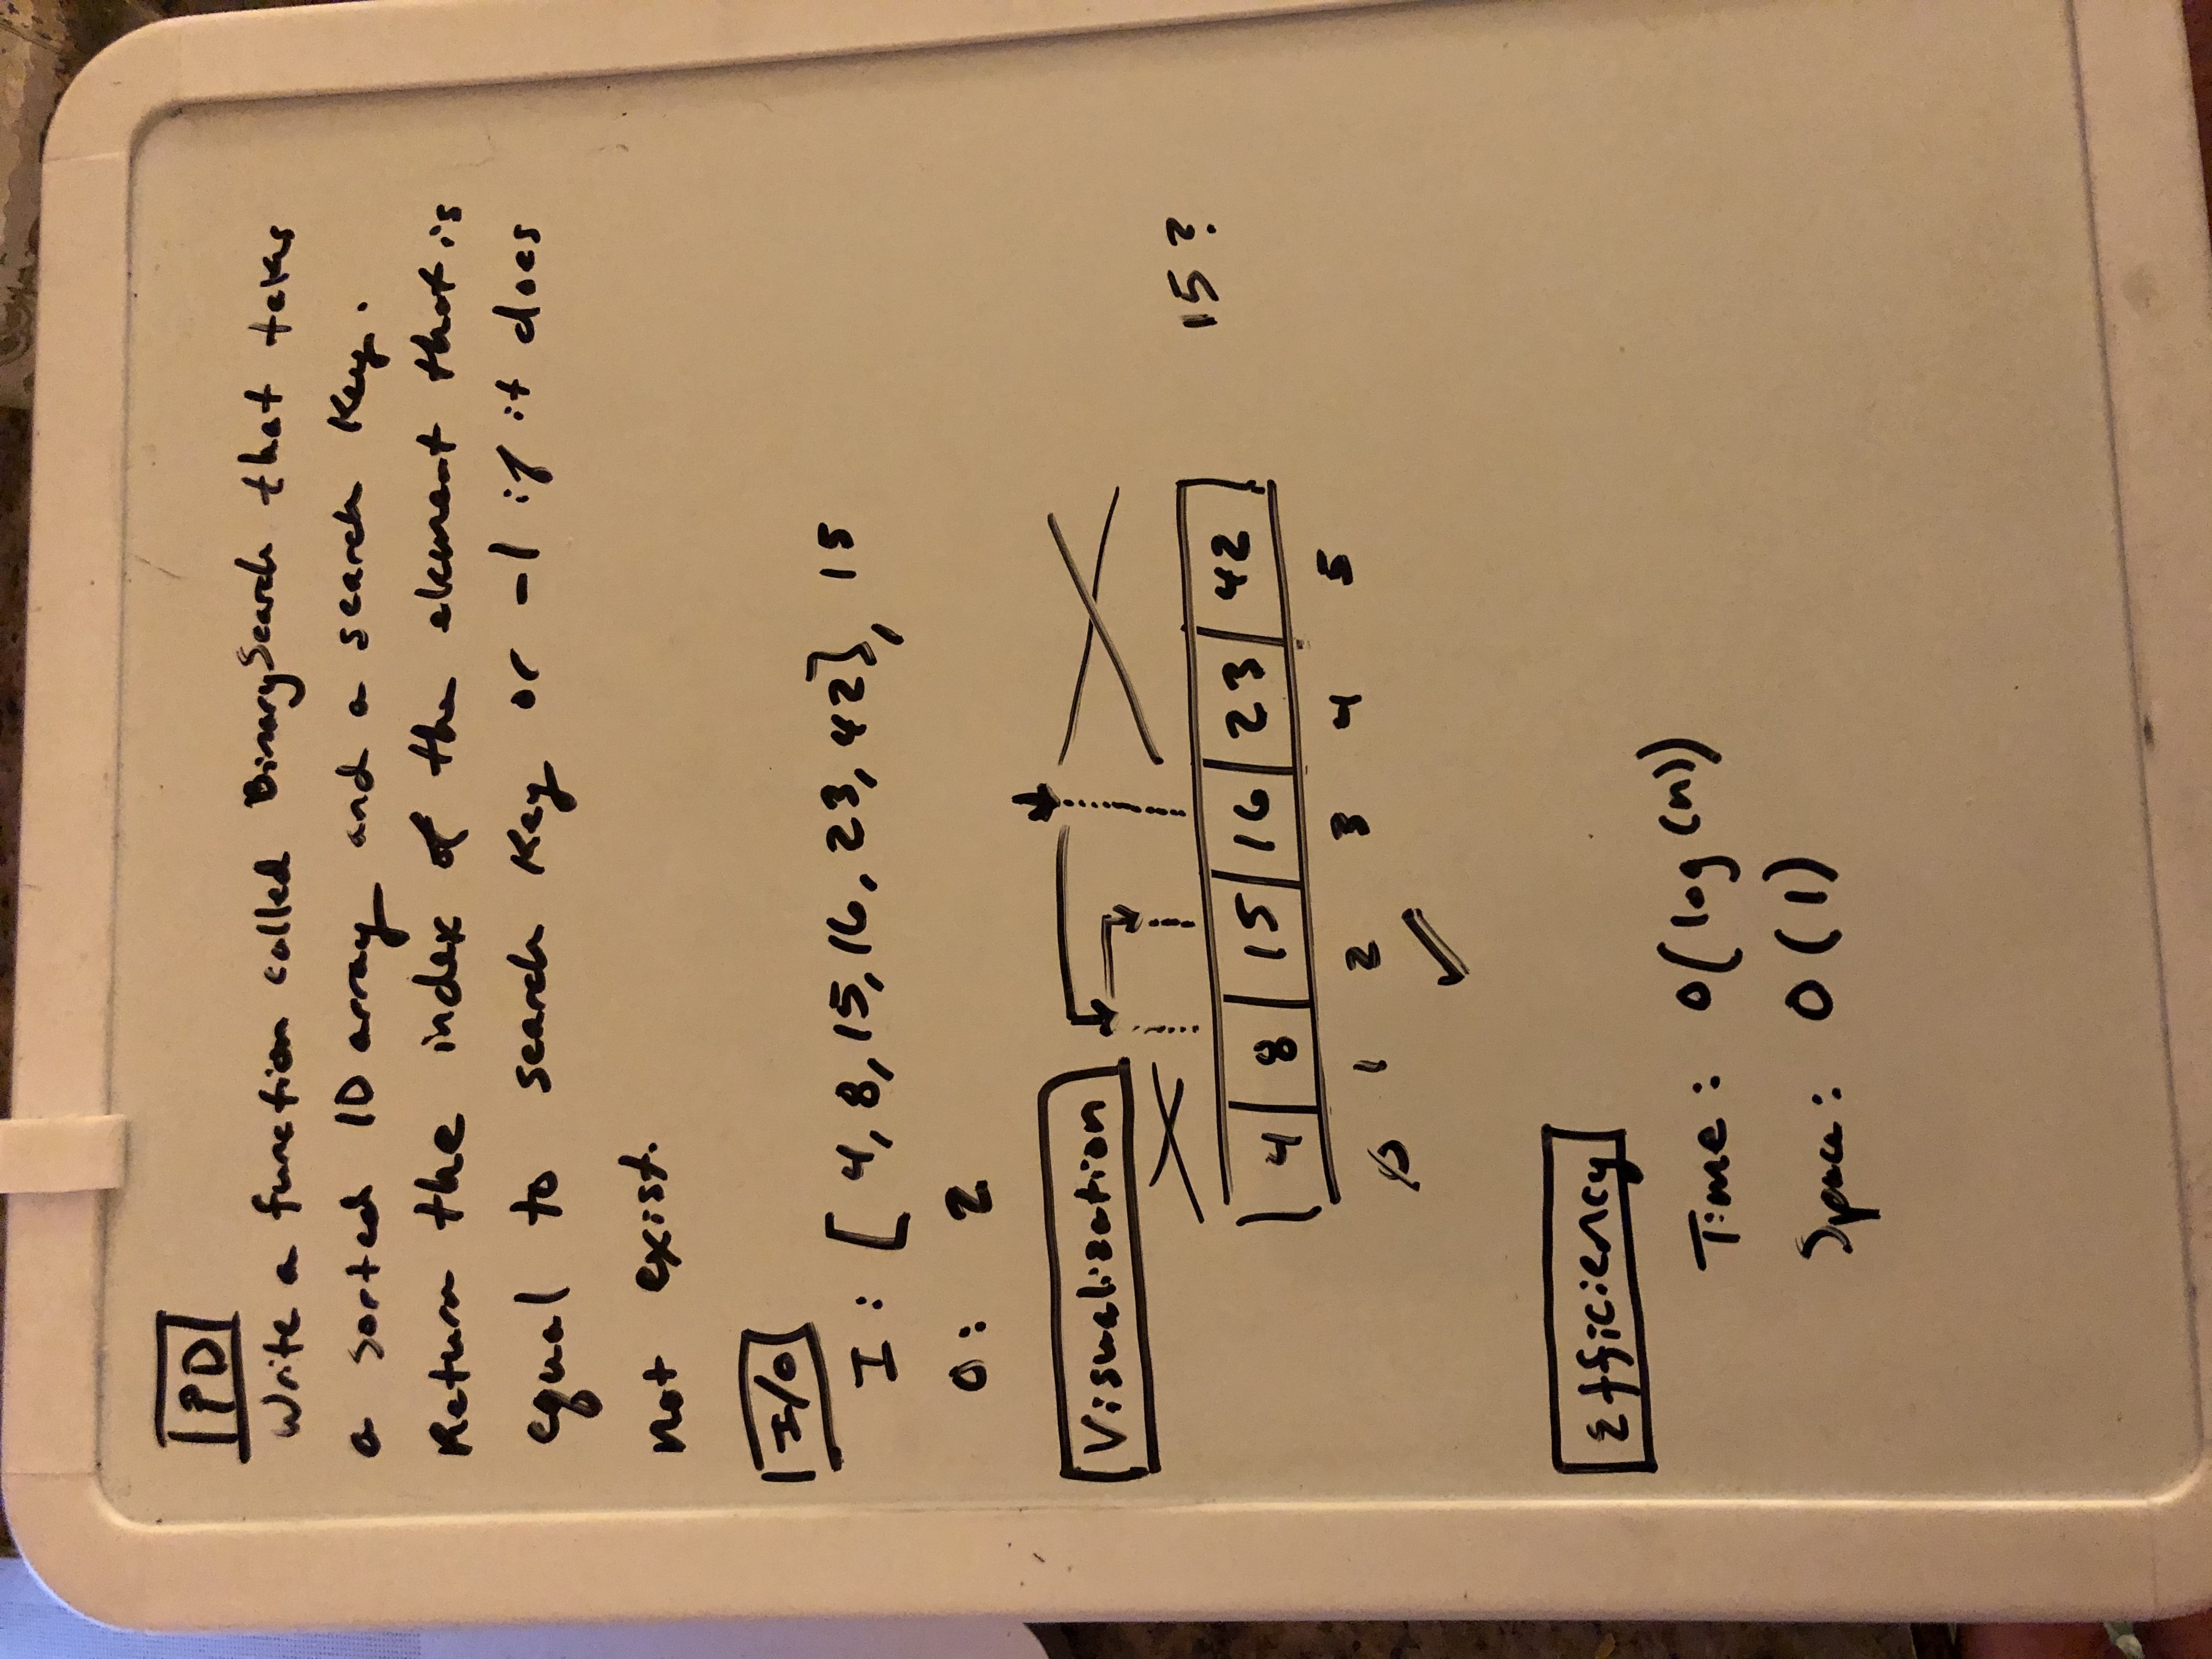 PD
Write a function called BinarySearch that takes
a sorted 1D array and a search key.
Return the index of the element that is
equal to search key or -1 if it does
not exist.
I/O
I: [4, 8, 15, 16, 23, 42], 15
O: 2
Visualization
15?
4 8 15 16 23 42
0 1 2 3 4 5
Efficiency
Time: O(log(n))
Space: O(1)